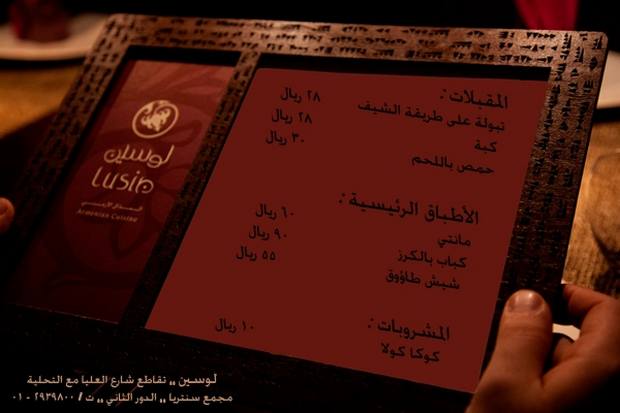 لوسين
Lusin
المذاق الأرمني
Armenian Cuisine
المقبلات :
تبولة على طريقة الشيف ٢٨ ريال
كبة ٢٨ ريال
حمص باللحم ٣٠ ريال
الأطباق الرئيسية :
مانتي ٦٠ ريال
كباب بالكرز ٩٠ ريال
شيش طاؤوق ٥٥ ريال
المشروبات :
كوكا كولا ١٠ ريال
لوسين ,, تقاطع شارع العليا مع التحلية
مجمع سنتريا ,, الدور الثاني ,, ت / ٢٩٣٩٨٠٠ - ٠١